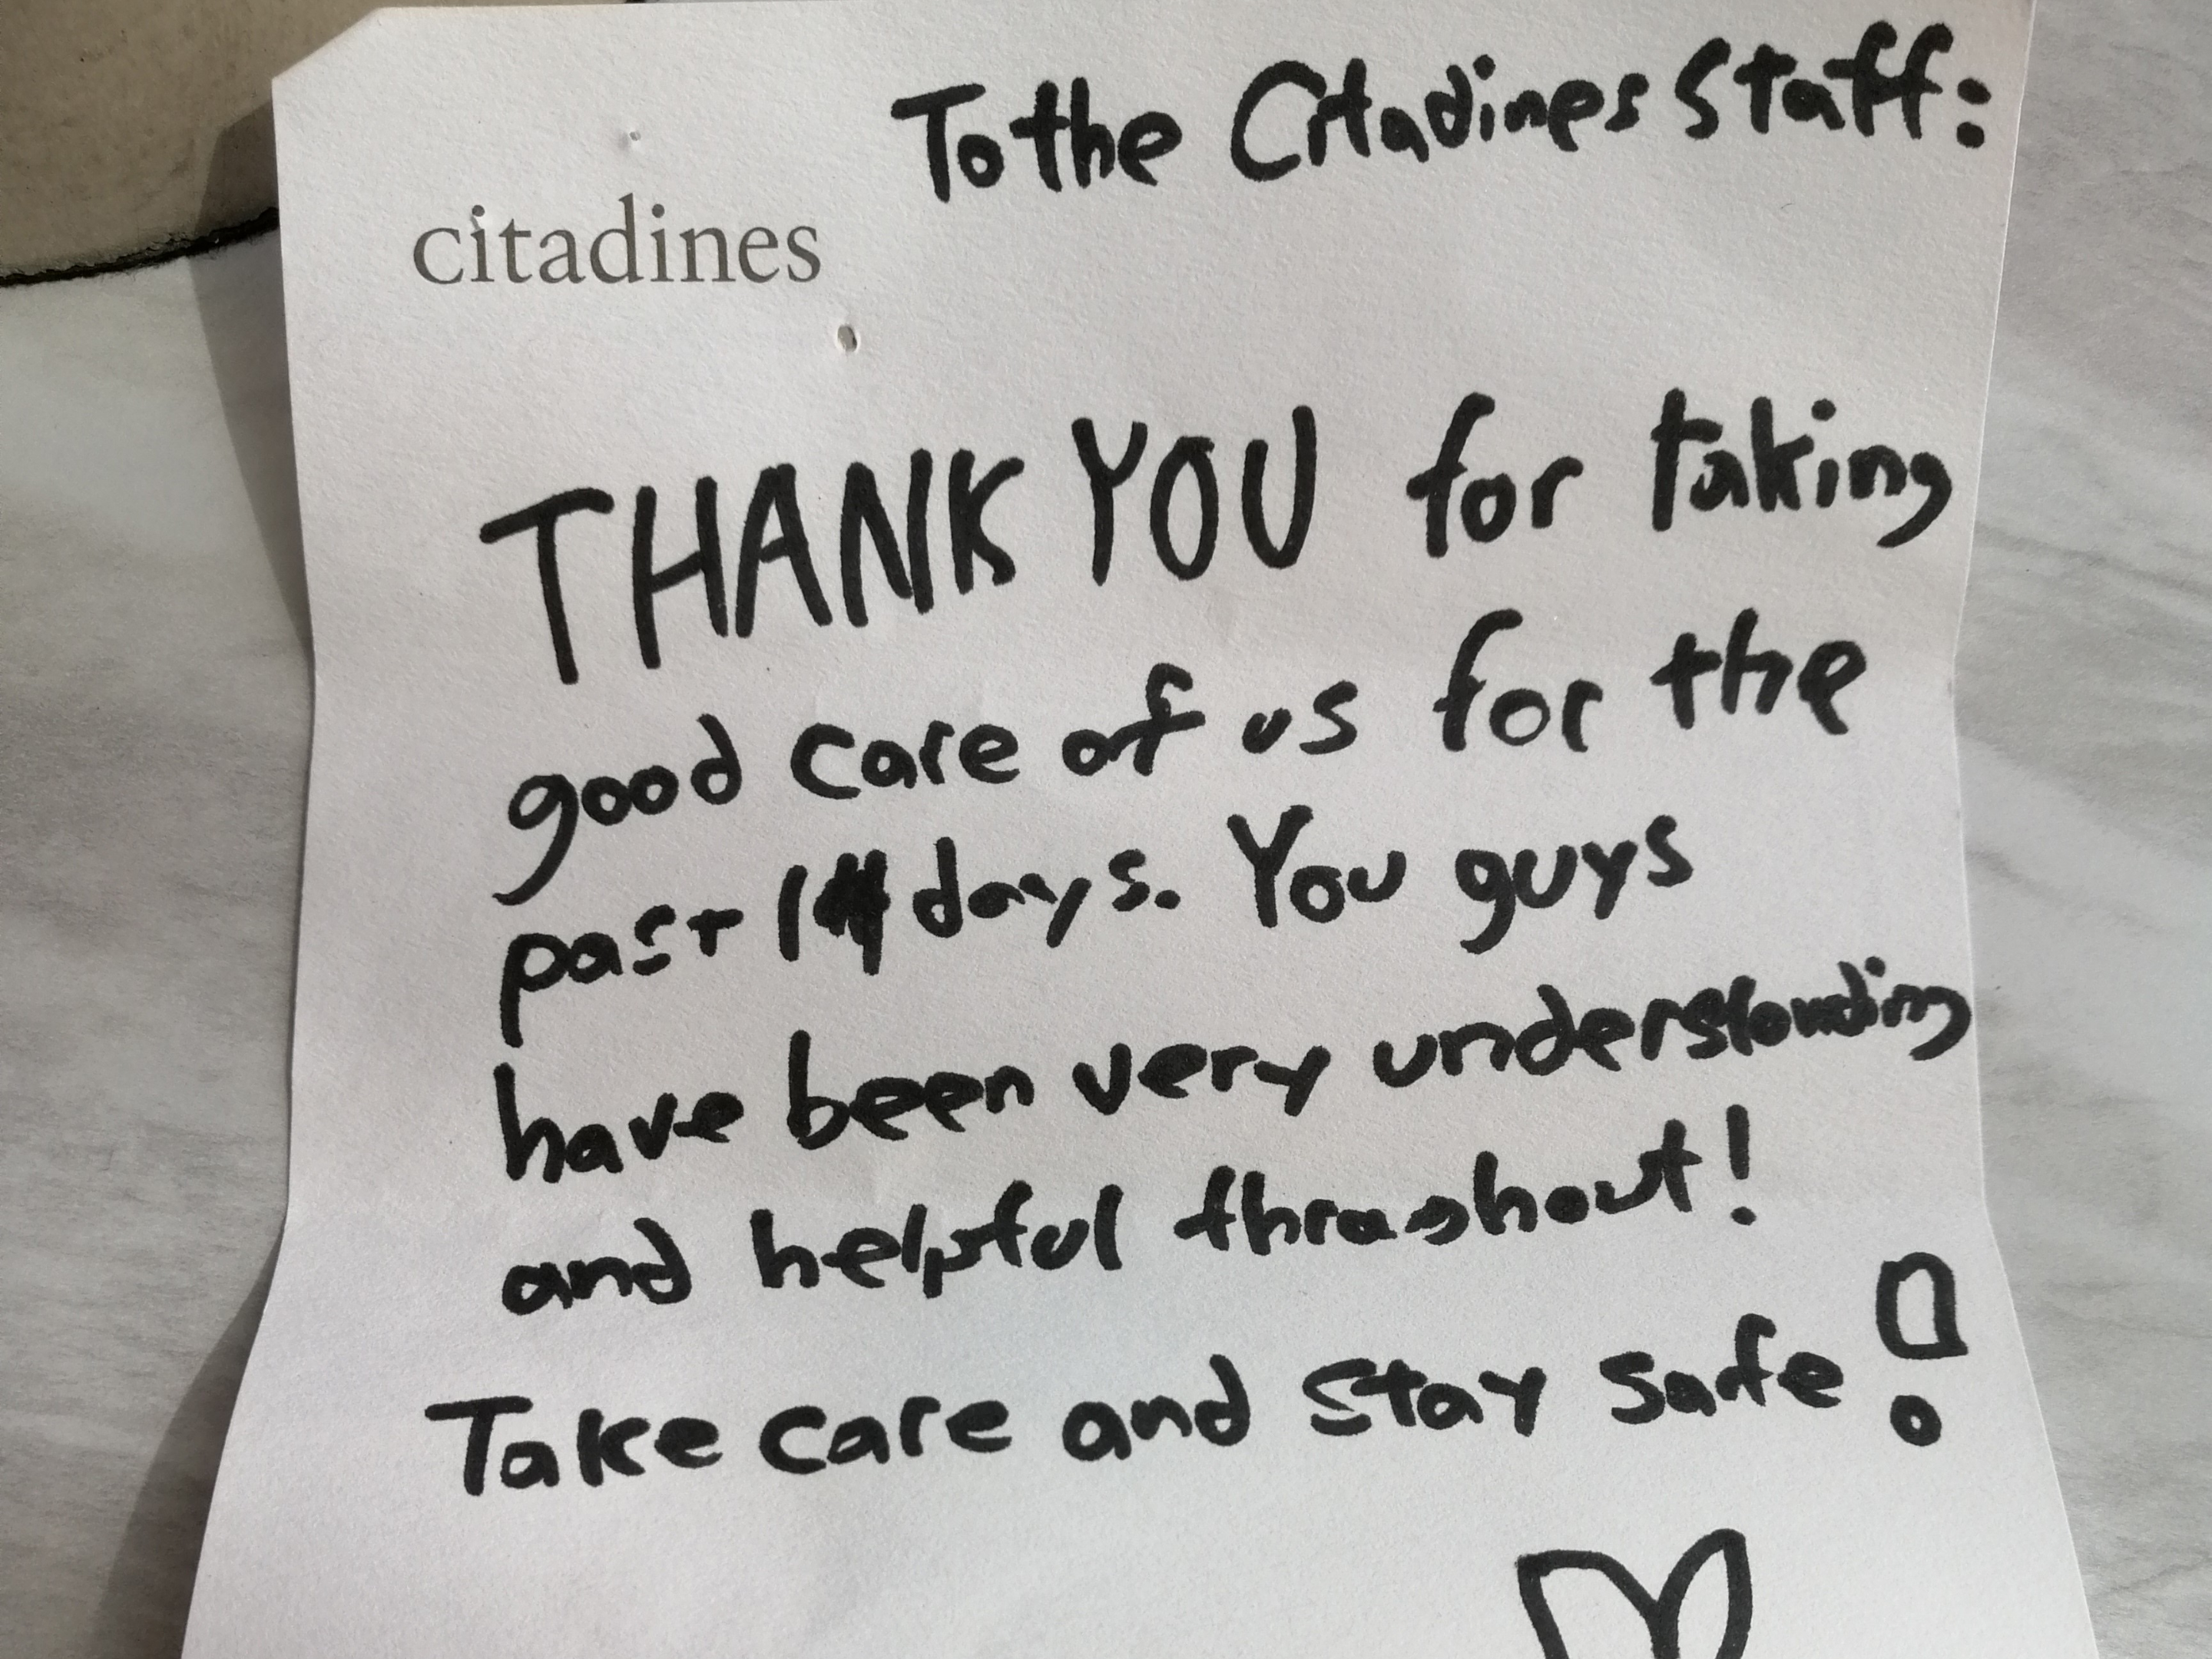 To the Citadines Staff:
citadines
THANK YOU for taking
good care of us for the
past 14 days. You guys
have been very understanding
and helpful throughout!
Take care and stay safe!